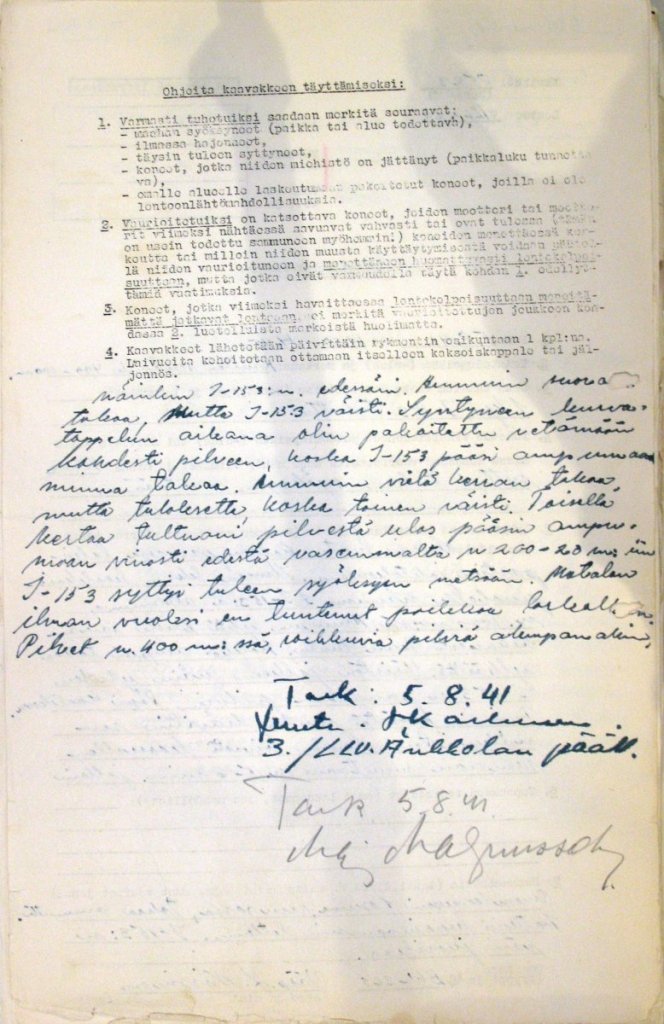 Ohjeita kaavakkeen täyttämiseksi:
1. Varmasti tuhotuiksi saadaan merkitä seuraavat:
- maahan syöksyneet (paikka tai alue todettava),
- ilmassa hajonneet,
- täysin tuleen syttyneet,
- koneet, jotka niiden miehistö on jättänyt (paikkaluku tunnettava),
- omalle alueelle laskeutuneet pakoitetut koneet, joilla ei ole
lentoonlähtömahdollisuuksia.
2. Vaurioitetuiksi on katsottava koneet, joiden moottori tai moottorit
viimeksi nähtäessä savuavat vahvasti tai ovat tulessa
on usein todettu sammuneen myöhemmin!) koneiden menettäessä korkeutta
tai milloin niiden muusta käyttäytymisestä voidaan
niiden vaurioituneen ja menettäneen huomattavasti lentokelpoisuuttaan,
mutta jotka eivät täytä kohdan 1. edellyttämiä
vaatimuksia.
3. Koneet, jotka viimeksi havaittaessa lentokelpoisuuttaan menettämättä
jatkavat lentoaan, ei merkitä vaurioitettujen joukkoon kohdassa
2. luetelluista merkeistä huolimatta.
4. Kaavakkeet lähetetään päivittäin rykmentin esikuntaan 1 kpl:na.
Laivueita kehoitetaan ottamaan itselleen kaksoiskappale tai jäljennös.
näinkin I-153:n edessäni. Ammuin suoraa
takaa, mutta I-153 väisti. Syntyneen kurva-
tappelun aikana olin pakoitettu vetämään
kahdesti pilveen, koska I-153 pääsi ampumaan
minua takaa. Ammuin vielä kerran takaa
mutta tuloksetta koska toinen väisti. Toisella
kertaa tultuani pilvestä ulos pääsin ampu-
maan vinosti edestä vasemmalta n 200-20 m:iin
I-153 syttyi tuleen syöksyen metsään. Matalan
ilman vuoksi en tuntenut paikkaa
Pilvet n. 400 m:ssä, roikkuvia pilviä alempanakin.
Tark. 5.8.41
3./LLv. pääll.
Tark 5.8.41
Maj Magnusson